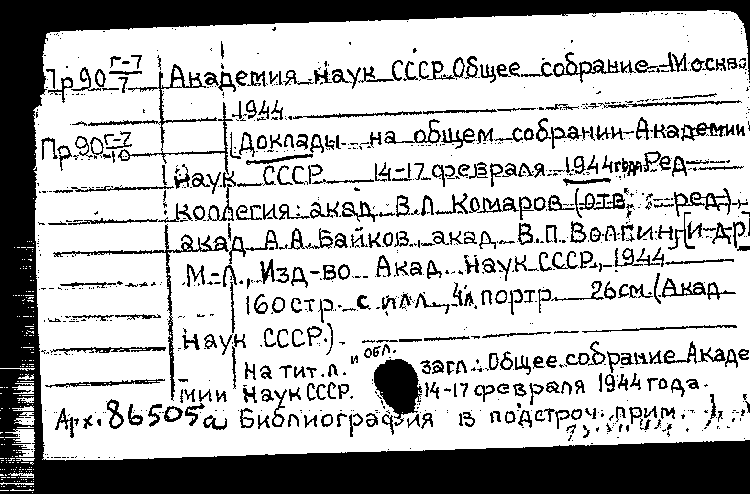 Пр90 Г-7/7 Академия наук СССР. Общее собрание. Москва
1944
Пр90 Г-7/10 [Доклады на общем собрании Академии
наук СССР 14-17 февраля 1944 года. Ред
коллегия: акад. В.Л. Комаров (отв. ред.),
акад. А.А. Байков, акад. В.П. Волгин [и др]
М.-Л., Изд-во Акад. Наук СССР, 1944
160 стр. с илл., 4л портр. 26см. (Акад.
наук СССР.)
На тит. л. и обл. загл.: Общее собрание Акаде
мии Наук СССР. 14-17 февраля 1944 года.
Арх. 86505а Библиография в подстроч. прим.